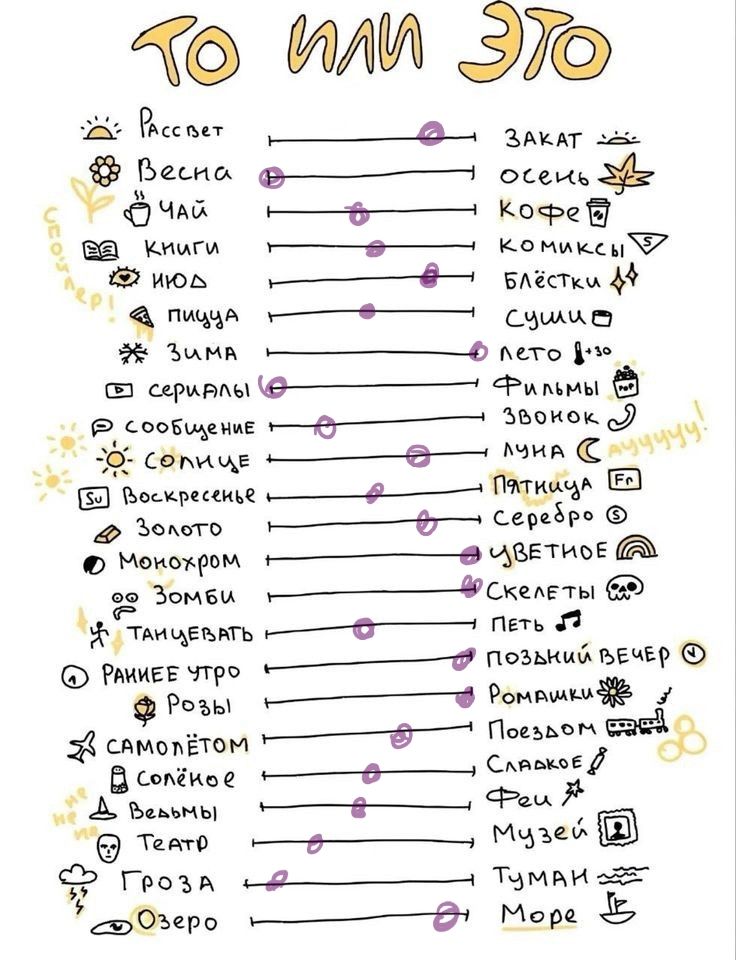 ТО ИЛИ ЭТО
Рассвет ЗАКАТ
Весна осень
ЧАЙ Кофе
спойлер!
Книги комиксы S
НЮД БЛЁСТКИ
пицца суши
Зима лето +30
сериалы Фильмы POP
сообщение ЗВОНОК
солнце ЛУНА АУУУУУУ!
Su Воскресенье Пятница Fr
Золото Серебро S
Монохром ЦВЕТНОЕ
Зомби Скелеты
ТАНЦЕВАТЬ ПЕТЬ
РАННЕЕ УТРО ПОЗДНИЙ ВЕЧЕР
Розы Ромашки
САМОЛЁТОМ Поездом
солёное Сладкое
Ведьмы Феи
не не на
Театр Музей
ГРОЗА Туман
Озеро Море